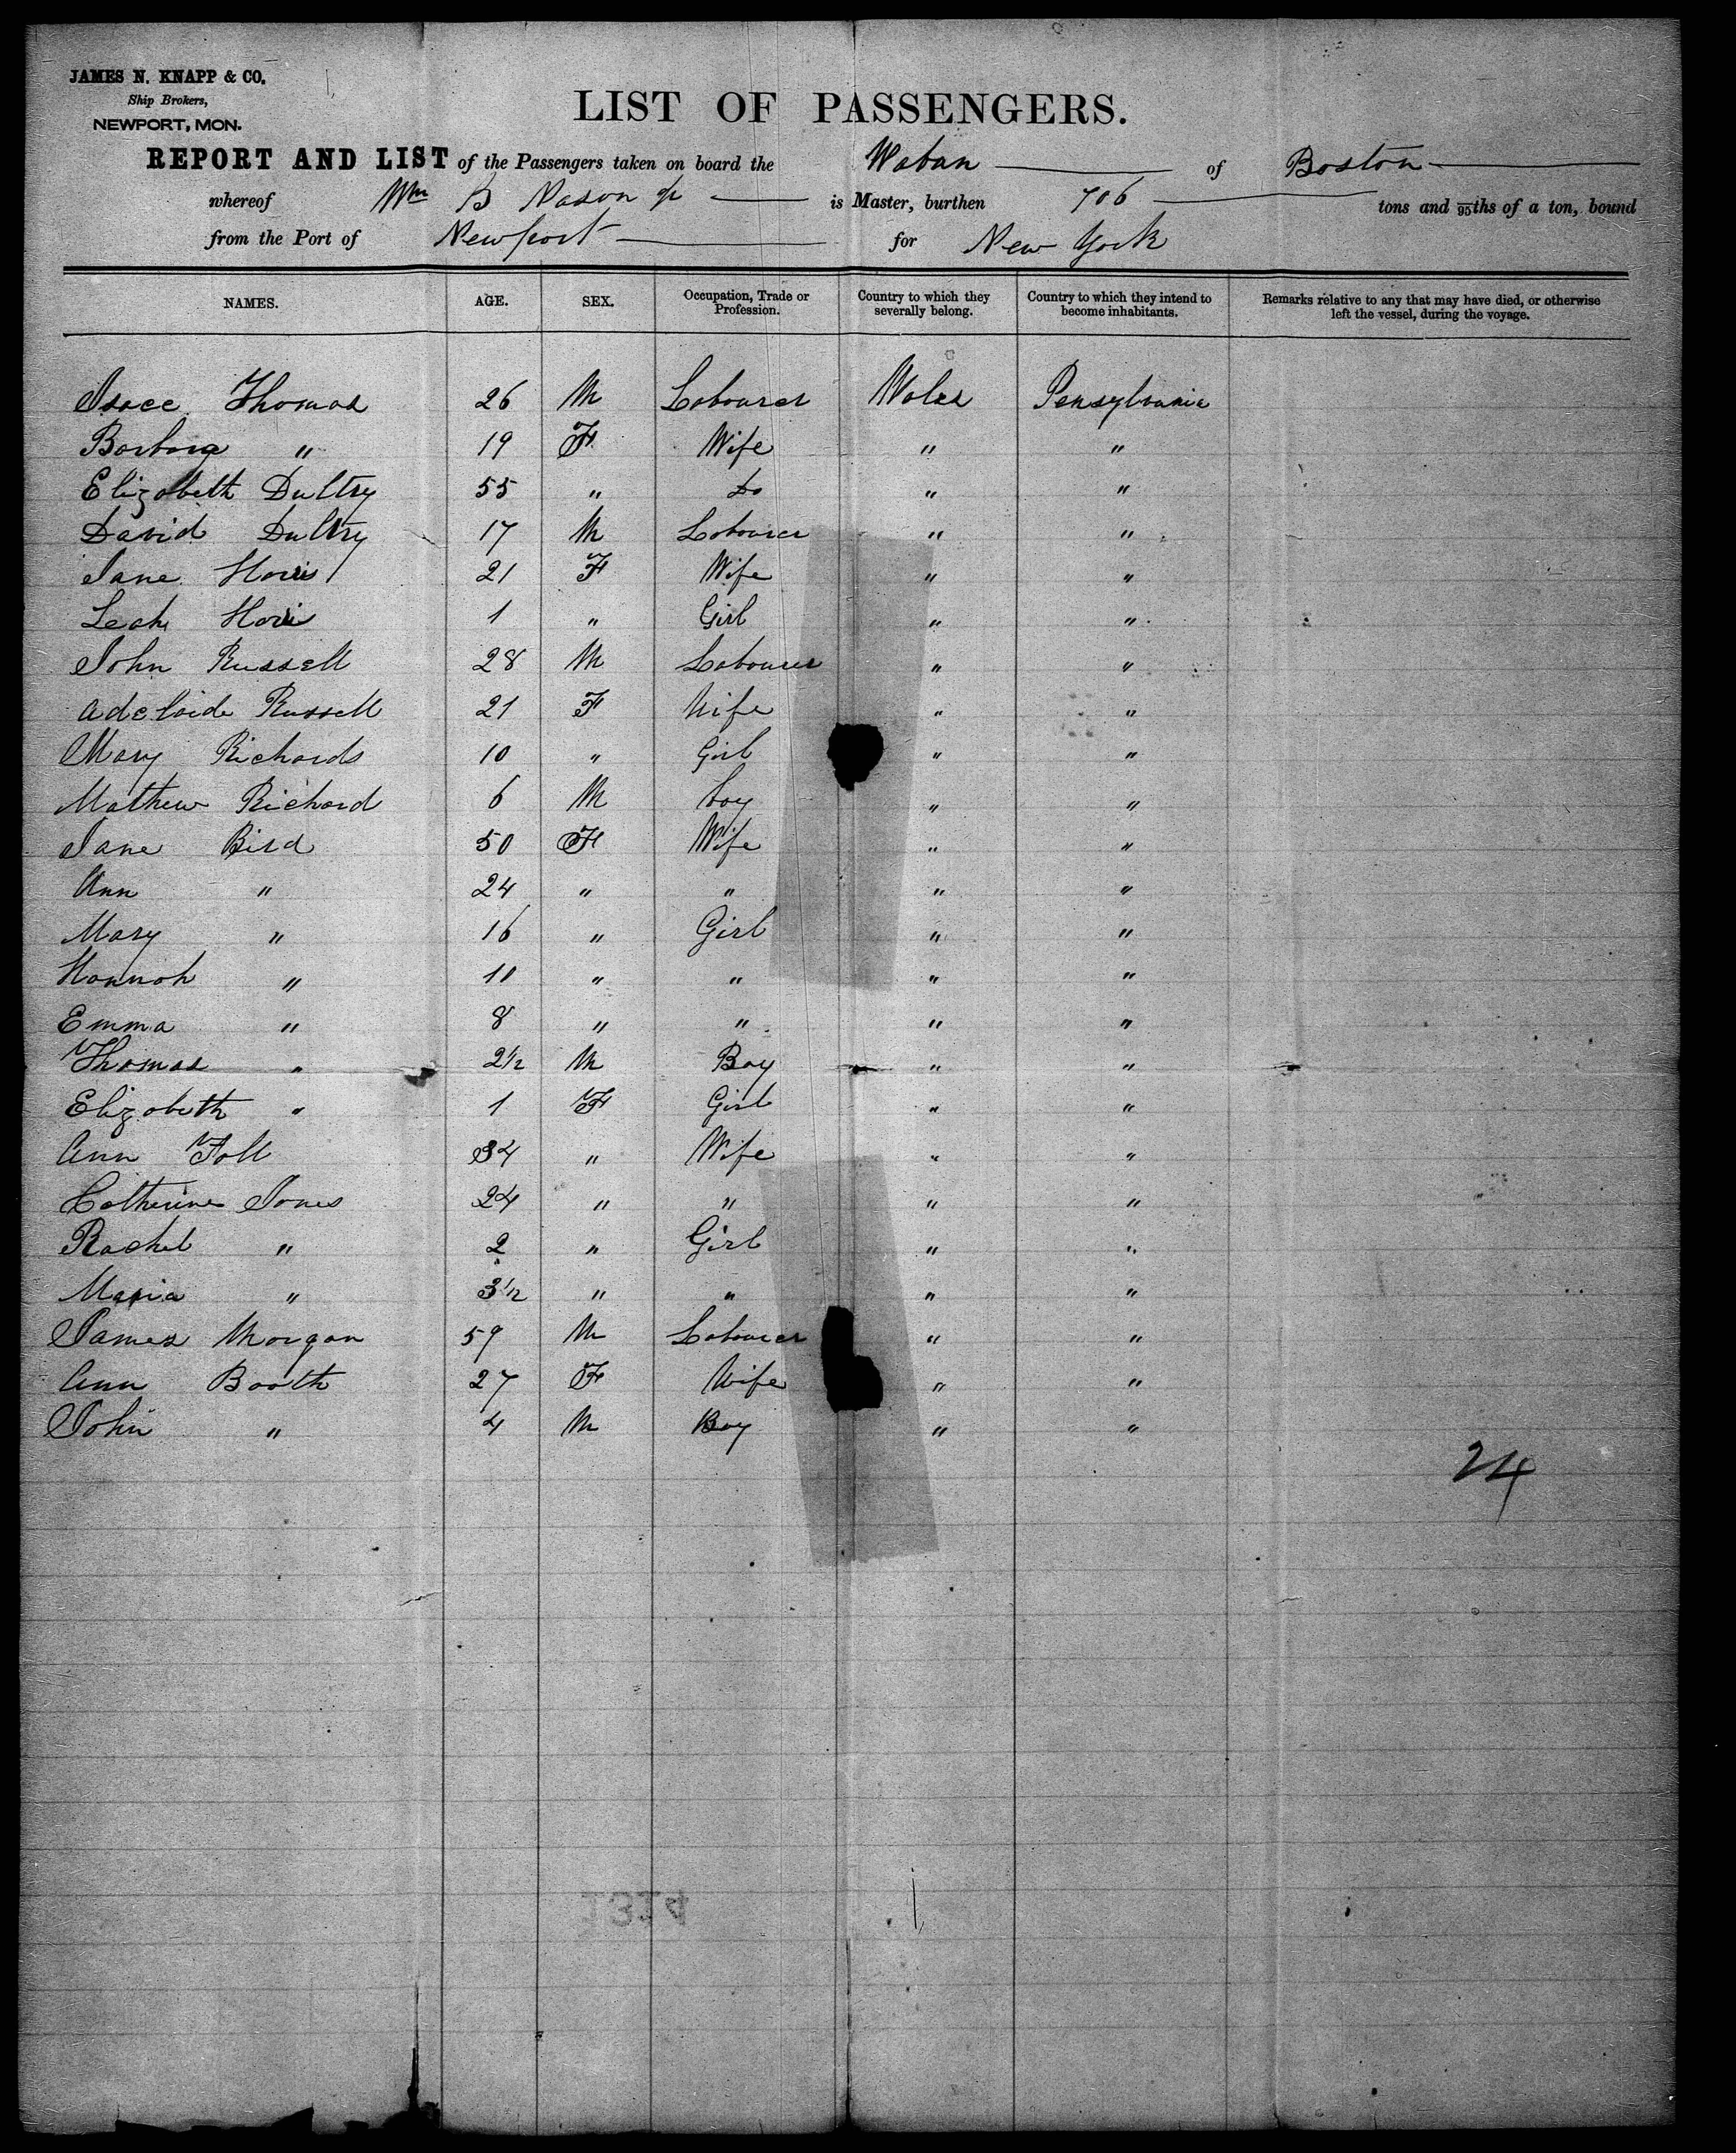 JAMES N. KNAPP & CO.
Ship Brokers,
NEWPORT, MON.
LIST OF PASSENGERS.
REPORT AND LIST of the Passengers taken on board the Waban of Boston
whereof Wm B Nason Jr is Master, burthen 706 tons and /95ths of a ton, bound
from the Port of Newport for New York
NAMES. AGE. SEX. Occupation, Trade or Profession. Country to which they severally belong. Country to which they intend to become inhabitants. Remarks relative to any that may have died, or otherwise left the vessel, during the voyage.
Isace Thomas 26 M Labourer Wales Pensylvania
Barbara " 19 F Wife " "
Elizabeth Dultry 55 " Do " "
David Dultry 17 M Labourer " "
Jane 21 F Wife " "
Leah 1 " Girl " "
John Russell 28 M Labourer " "
Adelaide Russell 21 F Wife " "
Mary Richards 10 " Girl " "
Mathew Richard 6 M boy " "
Jane Bird 50 F Wife " "
Ann " 24 " " " "
Mary " 16 " Girl " "
Hannah " 10 " " " "
Emma " 8 " " " "
Thomas " 2 1/2 M Boy " "
Elizabeth " 1 F Girl " "
Ann 34 " Wife " "
Catherine Jones 24 " " " "
Rachel " 2 " Girl " "
Maria " 3 1/2 " " " "
James Morgan 59 M Labourer " "
Ann Booth 27 F Wife " "
John " 4 M Boy " "
24
1314